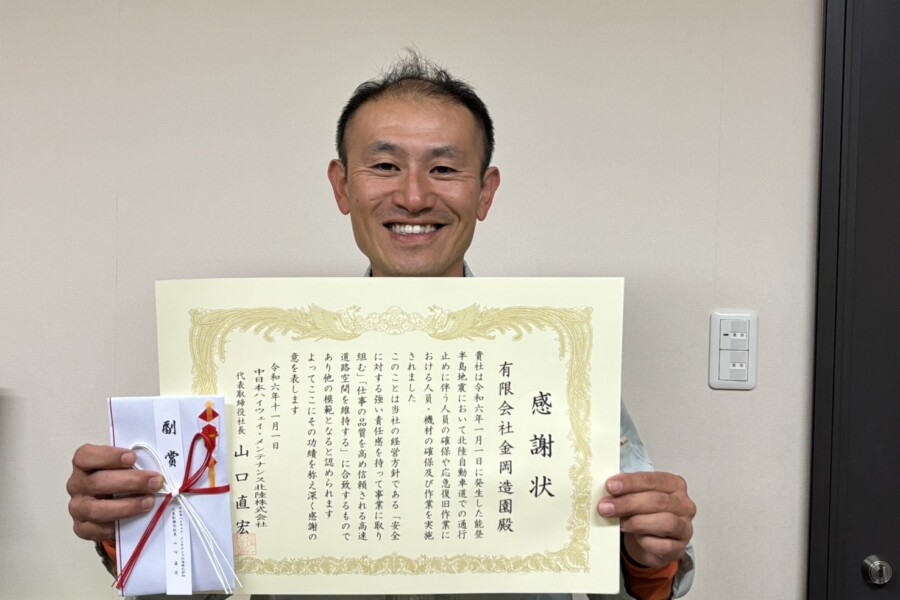 感謝状
有限会社金岡造園殿
貴社は令和六年一月一日に発生した能登
半島地震において北陸自動車道での通行
止めに伴う人員の確保や応急復旧作業に
おける人員・機材の確保及び作業を実施
されました
このことは当社の経営方針である「安全
に対する強い責任感を持って事業に取り
組む」「仕事の品質を高め信頼される高速
道路空間を維持する」に合致するもので
あり他の模範となると認められます
よってここにその功績を称え深く感謝の
意を表します
令和六年十一月一日
中日本ハイウェイ・メンテナンス北陸株式会社
代表取締役社長 山口直宏
副賞